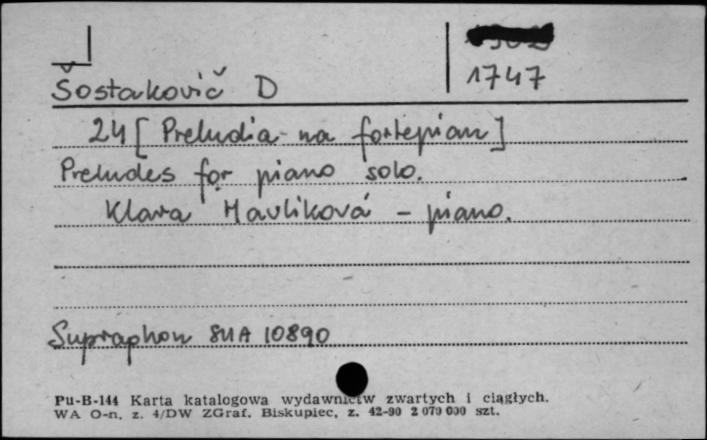 1747
Šostakovič D
24 [Preludia na fortepian]
Preludes for piano solo.
Klara Havliková - piano.
Supraphon SUA 10890
Pu-B-144 Karta katalogowa wydawnictw zwartych i ciągłych.
WA O-n, z. 4/DW ZGraf. Biskupiec, z. 42-90 2 079 000 szt.